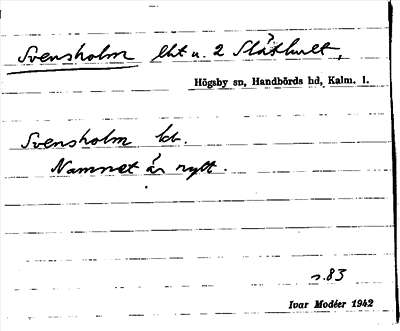 Svensholm lht u. 2 Slåthult,
Högsby sn, Handbörds hd, Kalm. l.
Svensholm bd.
Namnet är nytt.
s. 83
Ivar Modéer 1942